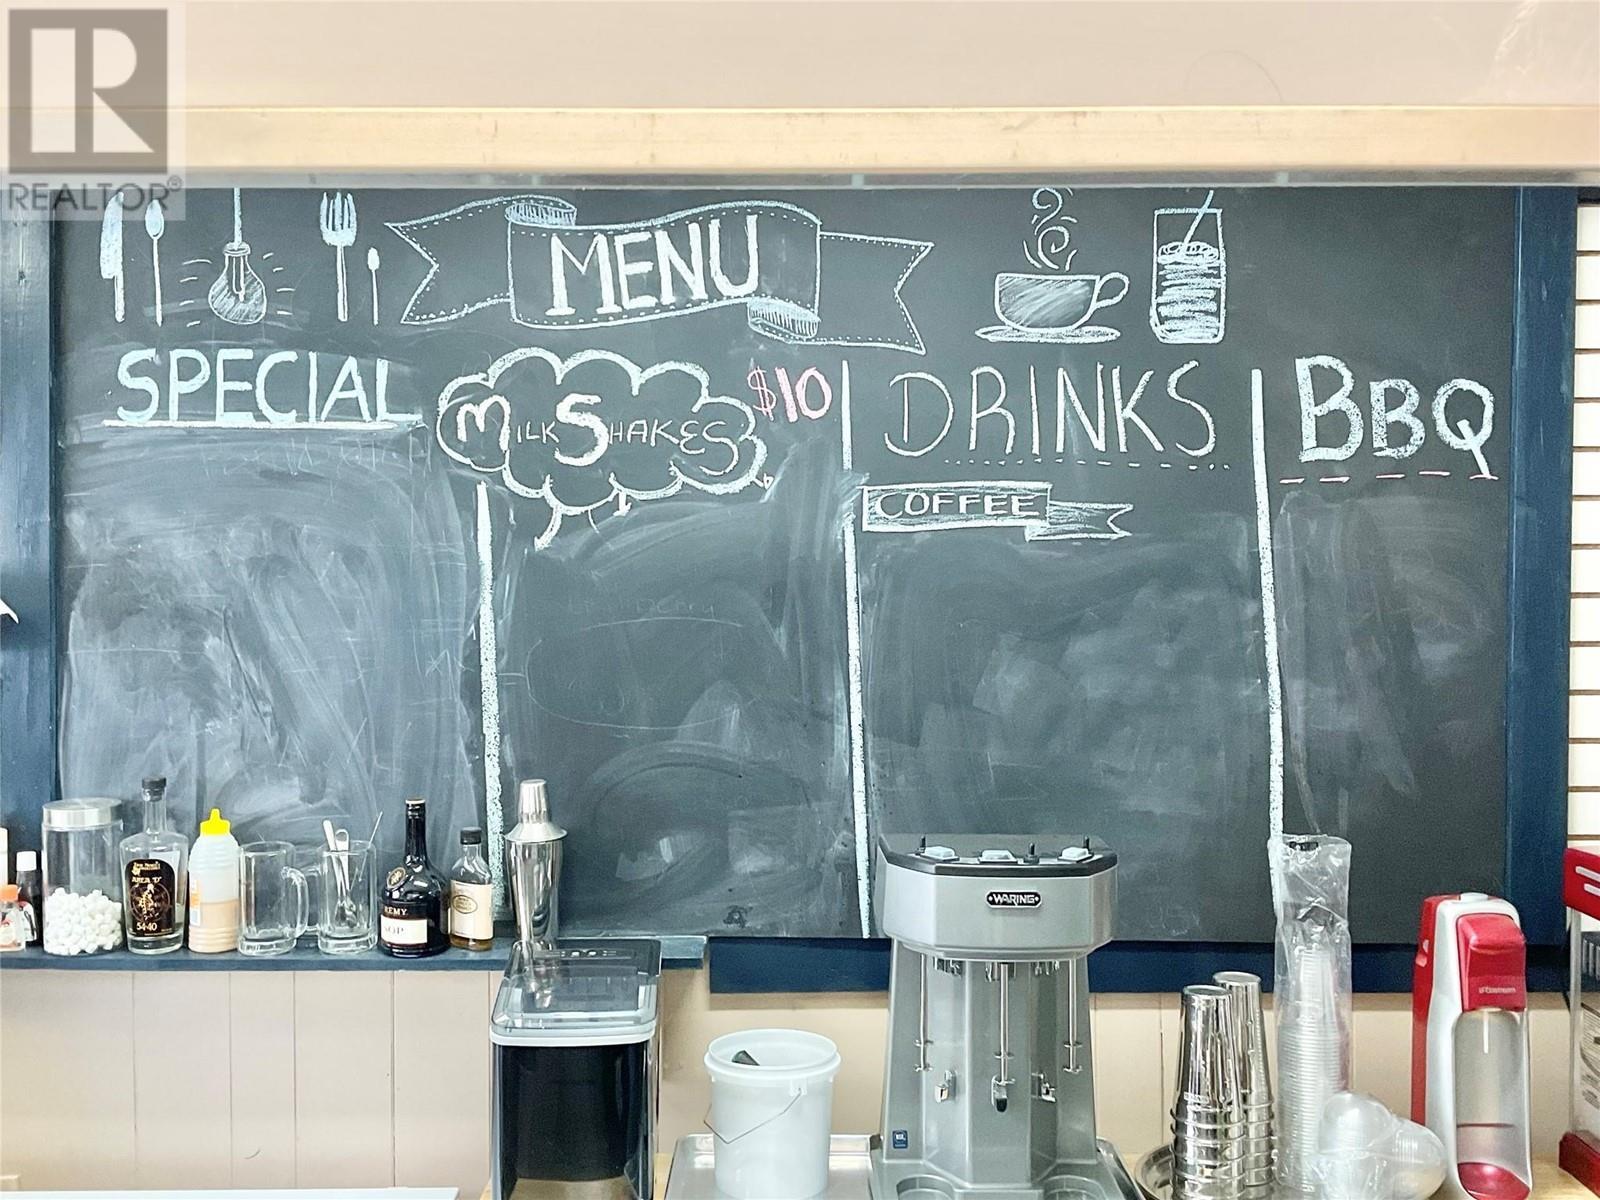 REALTOR®
MENU
SPECIAL
MILKSHAKES
$10
DRINKS
BBQ
COFFEE
Derry
AREA 'D'
54·40
REMY
SOP
WARING